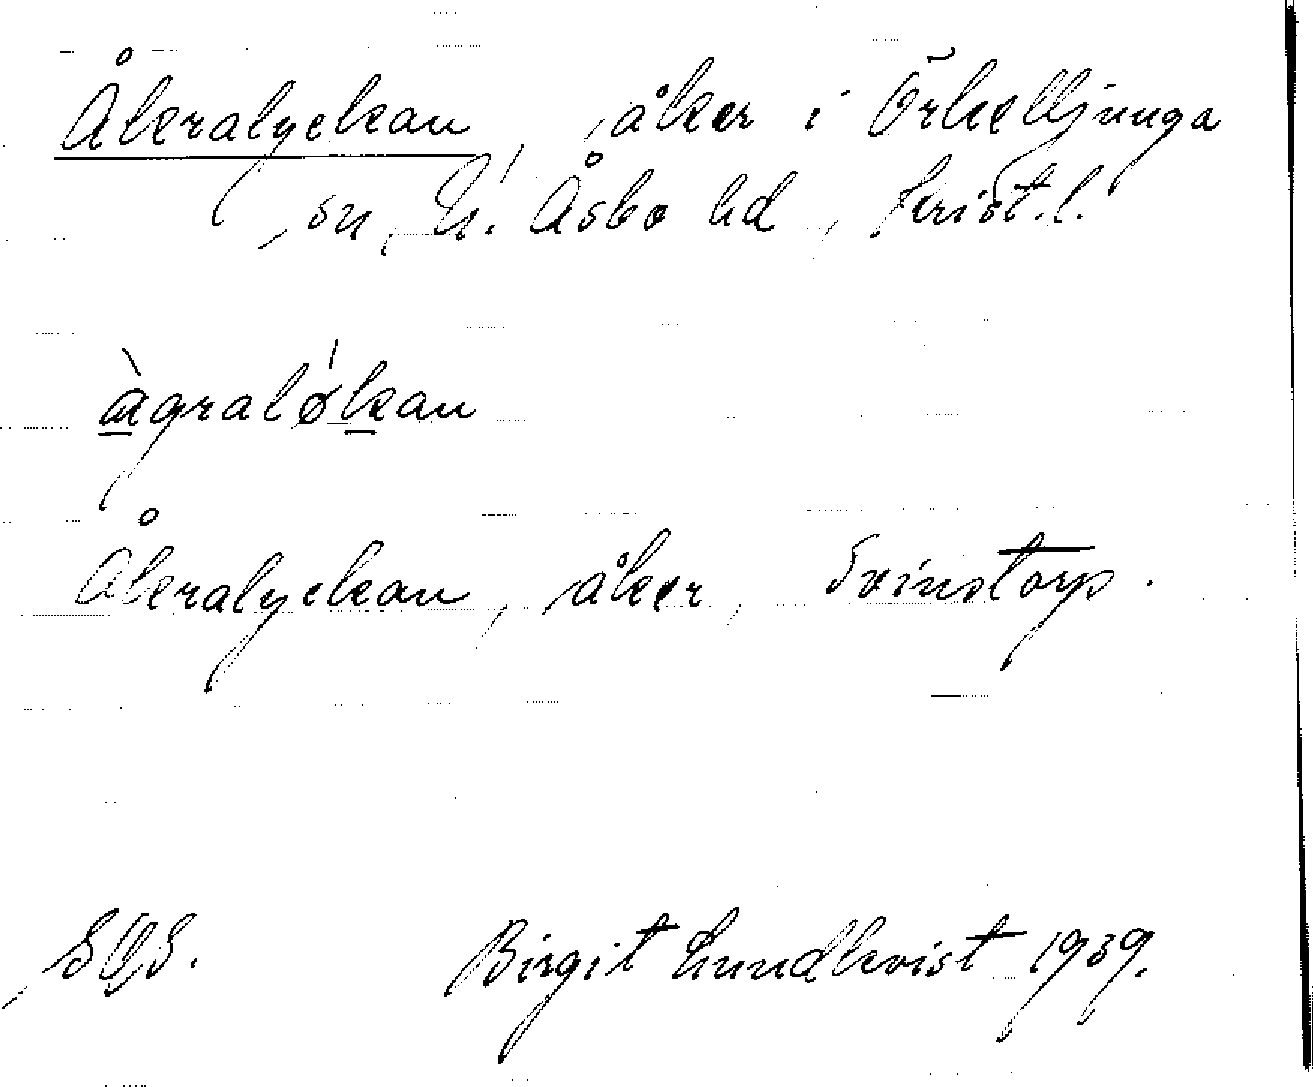 Åkeralyckan, åker i Örkelljunga
sn, N. Åsbo hd, Krist.l.
àgralǿkan
Åkeralyckan, åker, Svinstorp.
Birgit Lundkvist 1939.